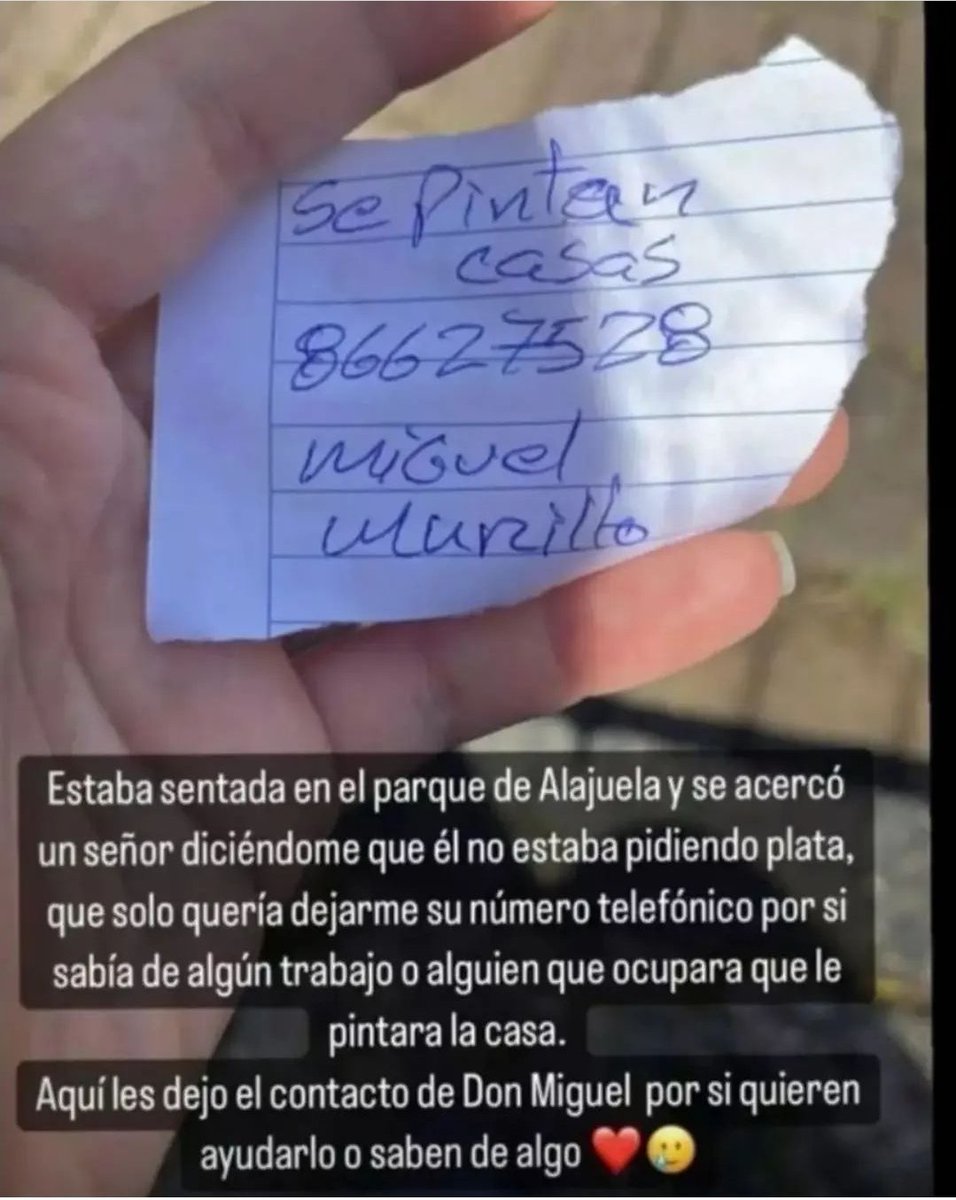 Se Pintan
casas
86627528
Miguel
Murillo
Estaba sentada en el parque de Alajuela y se acercó
un señor diciéndome que él no estaba pidiendo plata,
que solo quería dejarme su número telefónico por si
sabía de algún trabajo o alguien que ocupara que le
pintara la casa.
Aquí les dejo el contacto de Don Miguel por si quieren
ayudarlo o saben de algo ❤️🥲